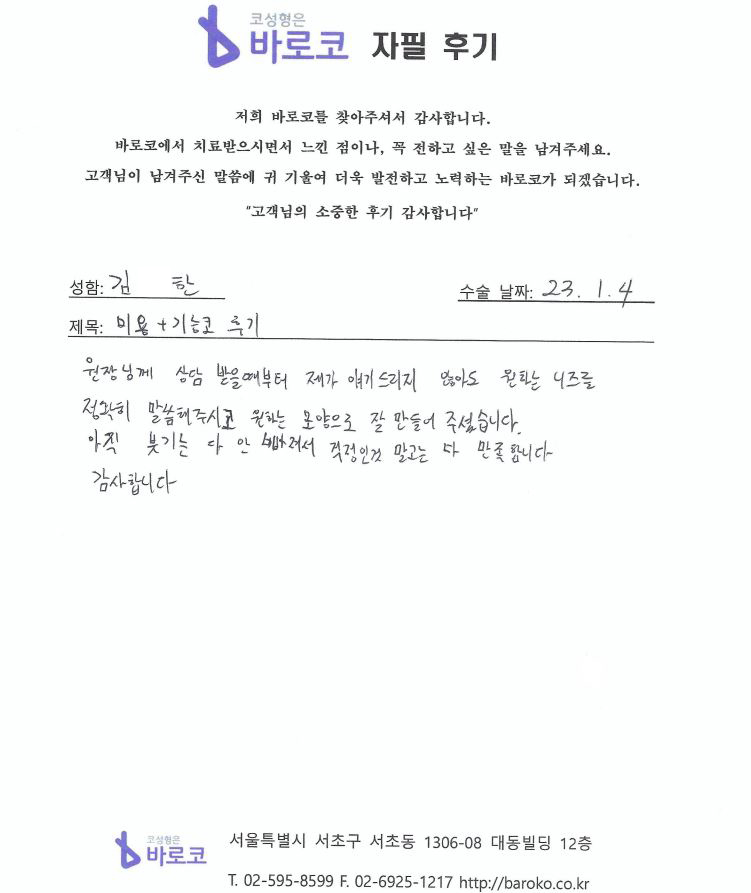 코성형은
바로코 자필 후기
저희 바로코를 찾아주셔서 감사합니다.
바로코에서 치료받으시면서 느낀 점이나, 꼭 전하고 싶은 말을 남겨주세요.
고객님이 남겨주신 말씀에 귀 기울여 더욱 발전하고 노력하는 바로코가 되겠습니다.
"고객님의 소중한 후기 감사합니다"
성함: 김 한
수술 날짜: 23. 1. 4
제목: 미용 + 기능코 후기
원장님께 상담 받을때부터 제가 얘기드리지 않아도 원하는 니즈를
정확히 말씀해주시고 원하는 모양으로 잘 만들어 주셨습니다.
아직 붓기는 다 안 빠져서 걱정인것 말고는 다 만족합니다
감사합니다
코성형은
바로코
서울특별시 서초구 서초동 1306-08 대동빌딩 12층
T. 02-595-8599 F. 02-6925-1217 http://baroko.co.kr